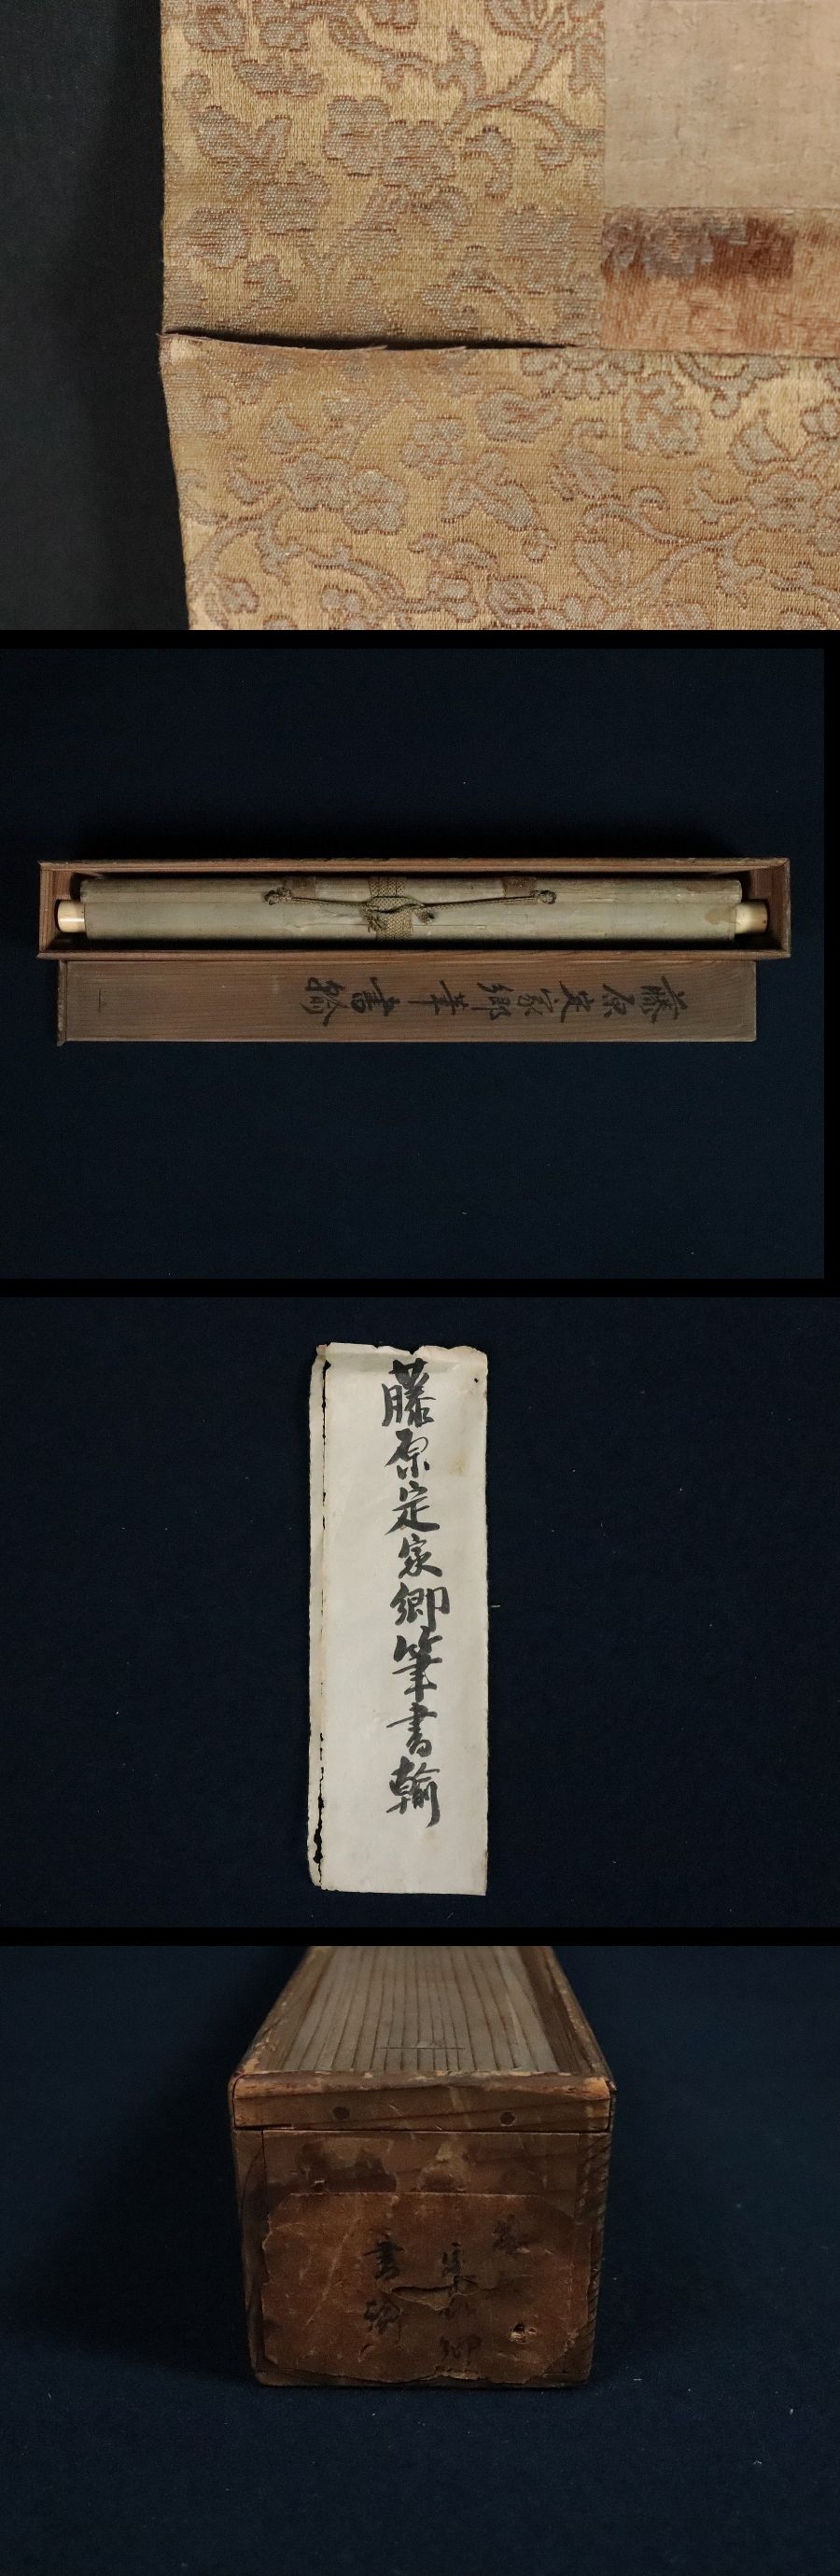 藤原定家卿筆書翰
藤原定家卿筆書翰
家卿
書翰